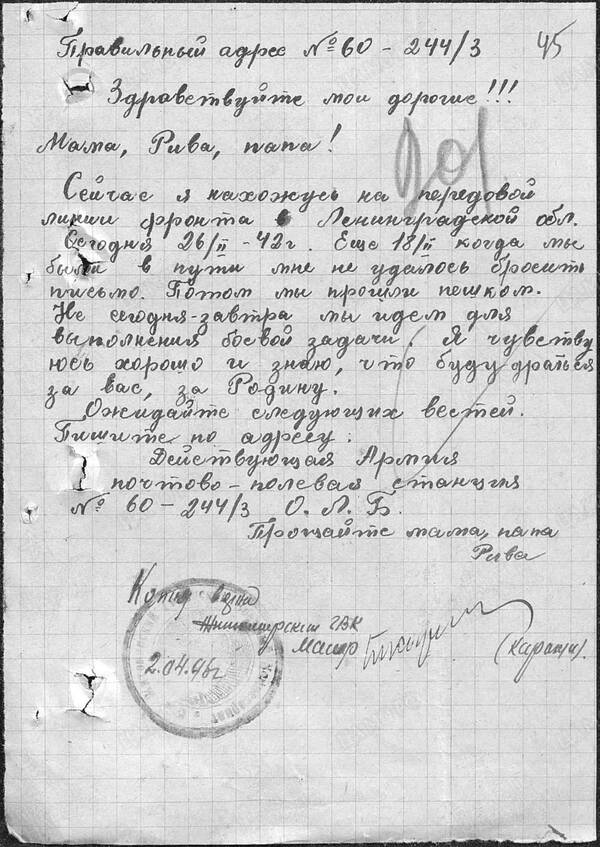 Правильный адрес № 60 - 244/3
45
Здравствуйте мои дорогие!!!
Мама, Рива, папа!
Сейчас я нахожусь на передовой
линии фронта в Ленинградской обл.
Сегодня 26/II - 42г. Еще 18/II когда мы
были в пути мне не удалось бросить
письмо. Потом мы прошли пешком.
Не сегодня-завтра мы идем для
выполнения боевой задачи. Я чувству
юсь хорошо и знаю, что буду драться
за вас, за Родину.
Ожидайте следующих вестей.
Пишите по адресу:
Действующая Армия
почтово-полевая станция
№ 60 - 244/3 О. Л. Б.
Прощайте мама, папа
Рива
Копия верна
ГВК
Майор
2.04.46г